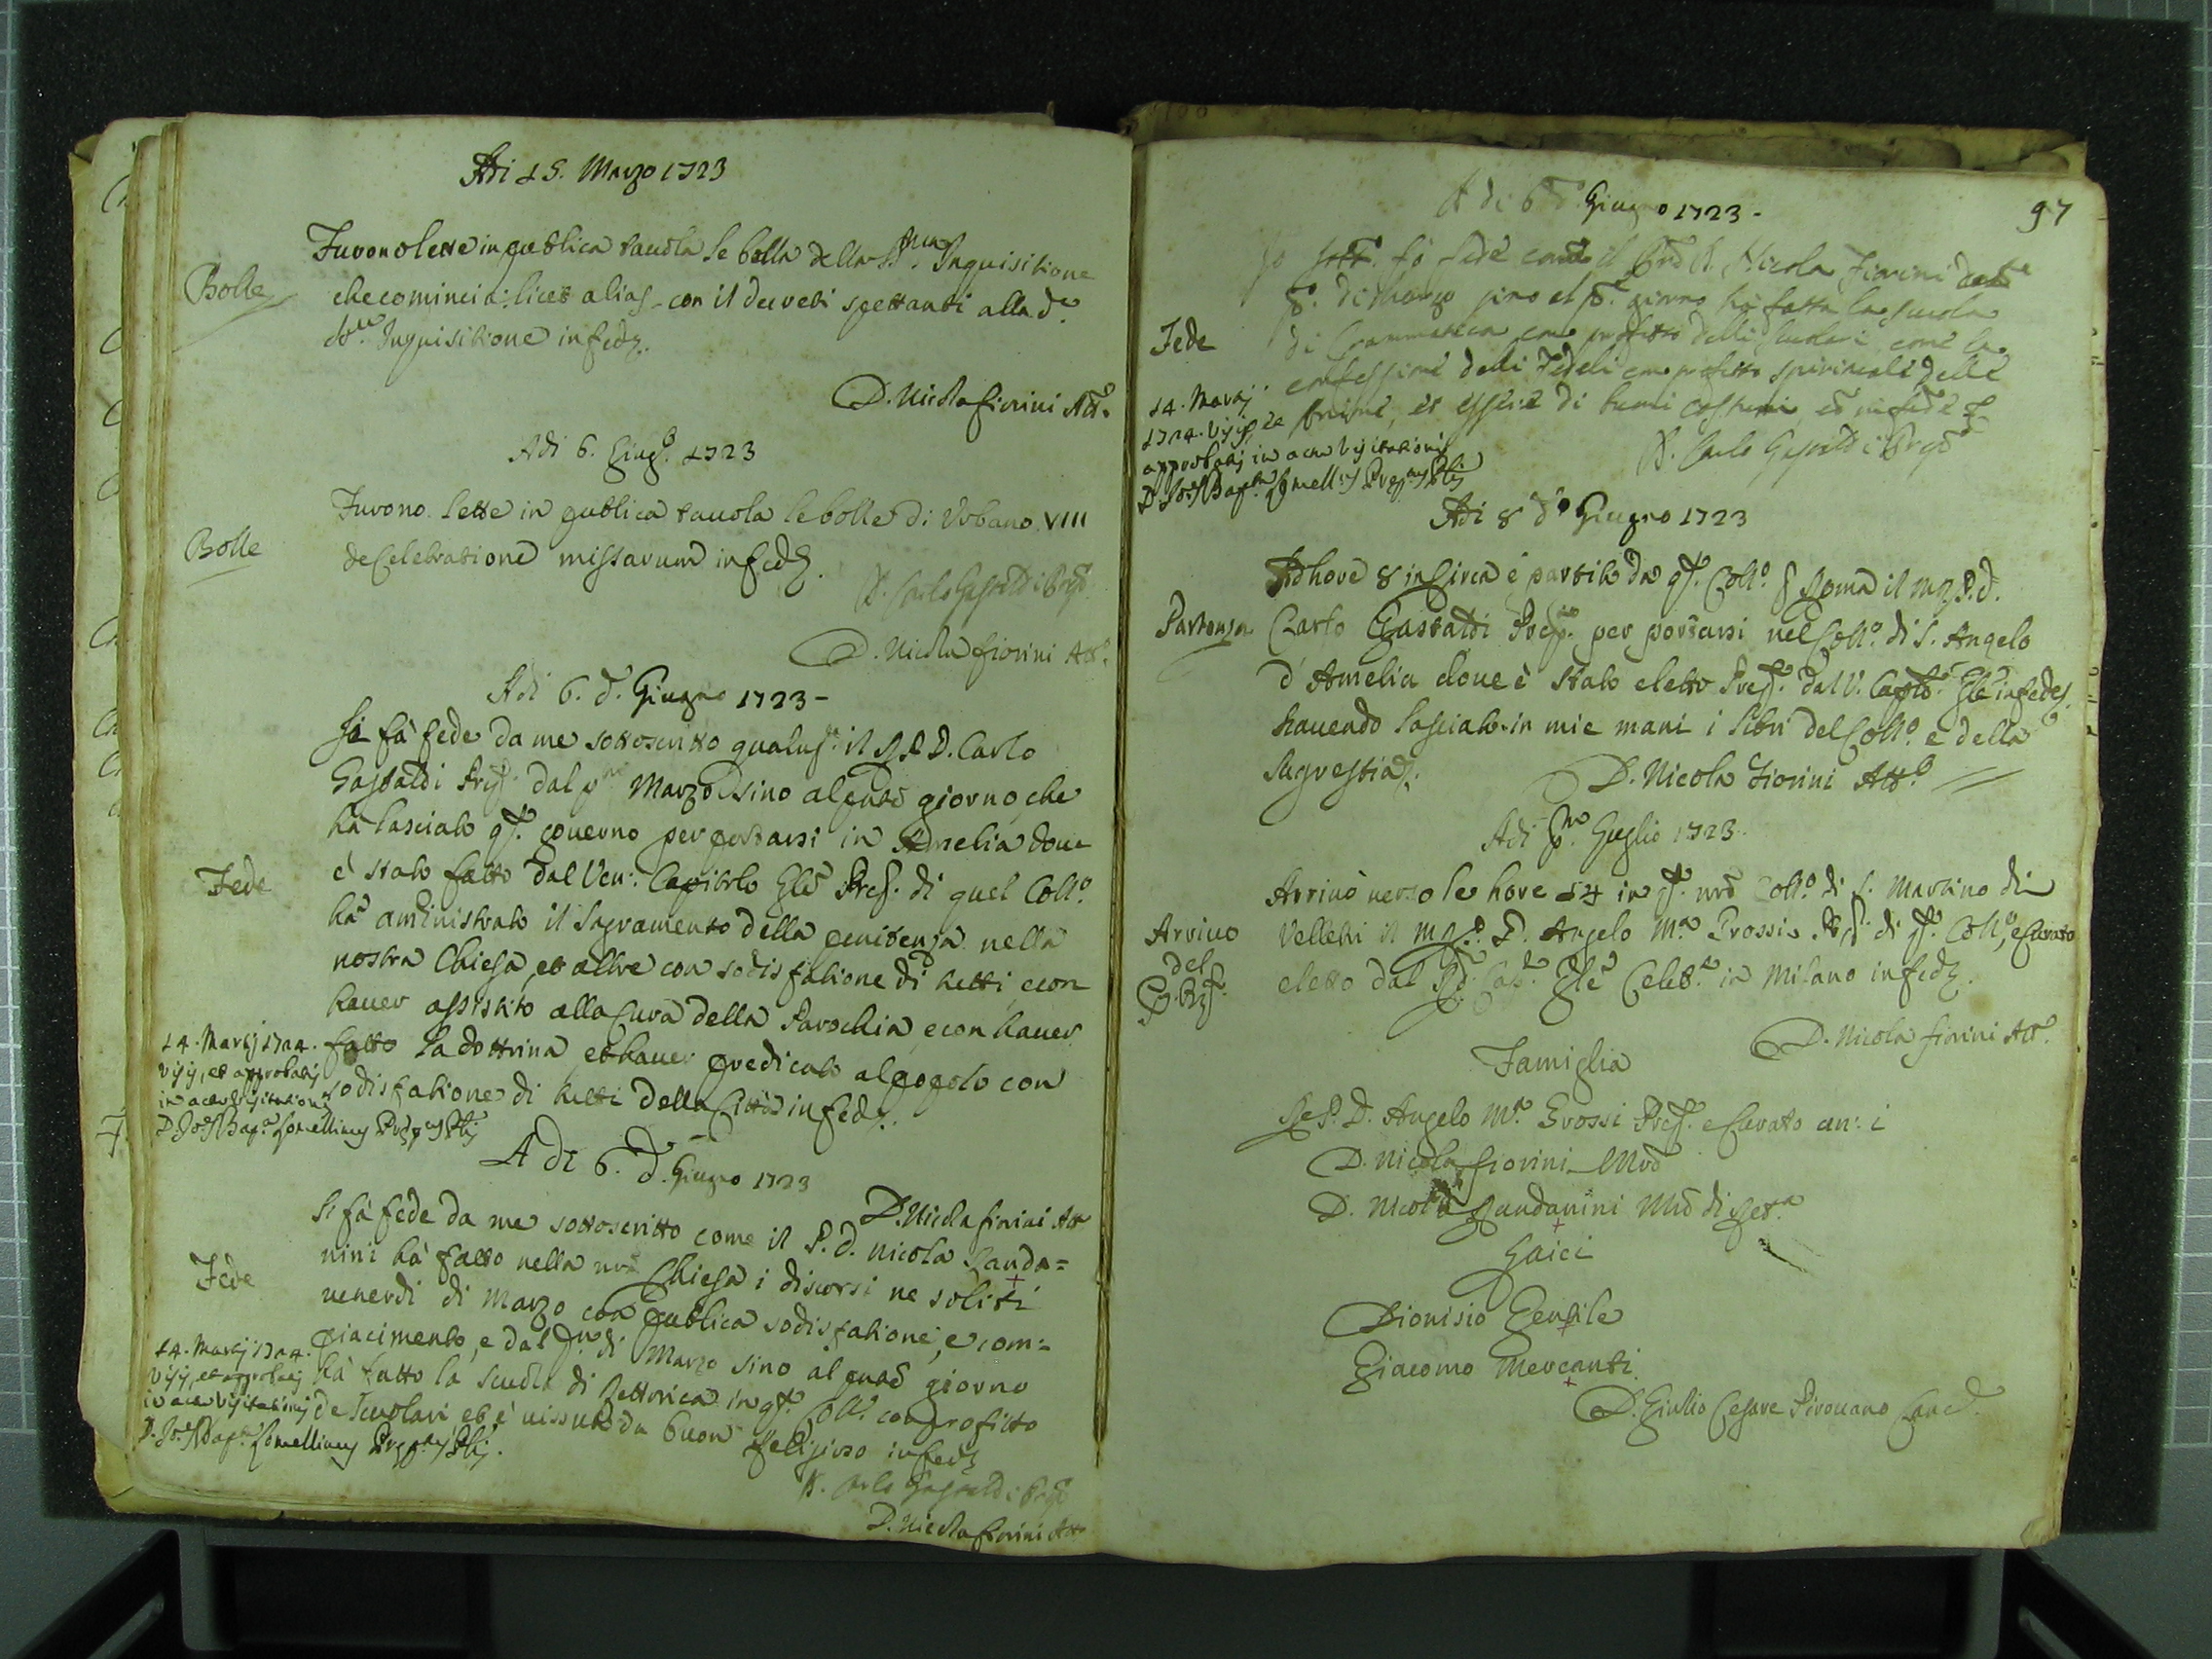 Adi 15. Marzo 1723
Bolle
Furono lette in publica tauola le bolla della S. Inquisitione
che comincia: licet alias con il decreti spettanti alla d.
Inquisitione in fede.
D. Nicola Fiorini Att.
Adi 6. Giug.o 1723
Bolle
Furono lette in publica tauola le bolle di Vrbano VIII
de Celebratione missarum in fede.
D. Carlo Gastaldi
D. Nicola Fiorini Att.
Adi 6. d. Giugno 1723 -
Fede
Si fà fede da me sottoscritto qualm. il P. D. Carlo
Gastaldi Prep. dal p.mo Marzo sino al giorno, che
hà lasciato q.to gouerno per portarsi in Amelia doue
è stato fatto dal Ven: Capitolo Gle Prep. di quel Coll.o
hà aministrato il Sagramento della penitenza nella
nostra Chiesa, et altre con sodisfatione di tutti, e con
hauer assistito alla Cura della Parochia, e con hauer
fatto la dottrina, et hauer predicato al popolo con
sodisfatione di tutti della Città in fede.
14. Martij 1724.
Visis, et approbatis
in actu Visitationis
D. Jo: Bap.ta Lomellinus
A di 6. d. Giugno 1723
D. Nicola Fiorini Att
Fede
Si fà fede da me sottoscritto come il P. d. Nicola Sanda=
nini hà fatto nella nra Chiesa i discorsi ne soliti
uenerdi di Marzo con publica sodisfatione, e com=
piacimento, e dal di Marzo sino al giorno
hà fatto la scuola di Rettorica in q.to Coll. con profitto
de Scuolari et è uissuto da buon Religioso in fede
14. Martij 1724.
Visis, et approbatis
in actu Visitationis
D. Jo: Bap.ta Lomellinus
D. Carlo Gastaldi
D. Nicola Fiorini Att
97
A di 6 d. Giugno 1723 -
Fede
Io sott. fò fede come il D. Nicola Fiorini
di Marzo sino al giorno hà fatta la scuola
di Grammatica con profitto delli scolari, come la
confessione delli Fedeli con profitto spirituale delle
anime, et essere di buoni costumi, ed in fede
14. Martij
1724. Visis, et
approbatis in actu Visitationis
D. Jo: Bap.ta Lomellinus
D. Carlo Gastaldi
Adi 8 d.o Giugno 1723
Partenza
Ad hore 8 in Circa è partito da q.to Coll.o Roma il P. d.
Carlo Gastaldi Prep. per portarsi nel Coll.o di S. Angelo
d'Amelia doue è stato eletto Prep. dal V. Capto. Gle in fede,
hauendo lasciato in mie mani i libri del Coll.o e della
Sagrestia.
D. Nicola Fiorini Att.o
Adi p.mo Guglio 1723
Arriuo
del
Arriuò uerso le hore 14 in q.to nro Coll.o di S. Martino di
Velletri il P. D. Angelo M.a Grossi di q.to Coll.o, e Curato
eletto dal Cap. Gle Celeb. in Milano in fede.
D. Nicola Fiorini Att.o
Famiglia
P. D. Angelo M.a Grossi Prep. e Curato an: i
D. Nicola Fiorini
D. Nicola Sandanini di Ret.a
Laici
Dionisio Gentile
Giacomo Mercanti
D. Giulio Cesare Pirouano Canc.